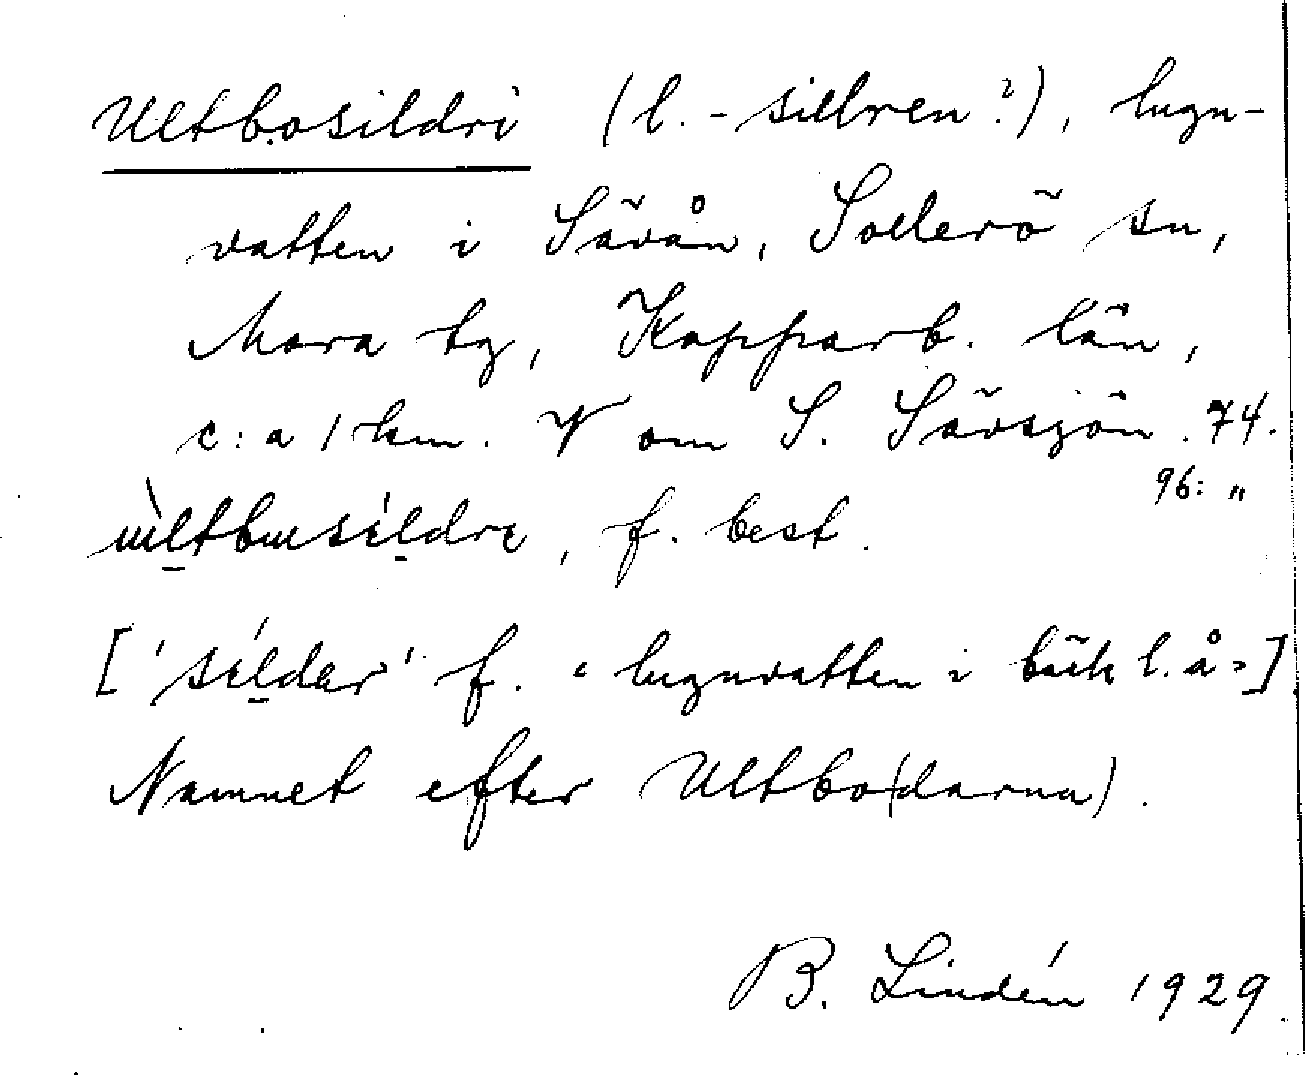 Ultbosildri (l. -sillren?), lugn-
vatten i Säván, Sollerö sn,
Mora tg, Kopparb. län,
c:a 1 km. V om S. Sävsjön. 74.
96: "
ùltbusíldrı, f. best.
['síldar' f. "lugnvatten i bäck l. å"]
Namnet efter Ultbo(darna).
B. Lindén 1929.